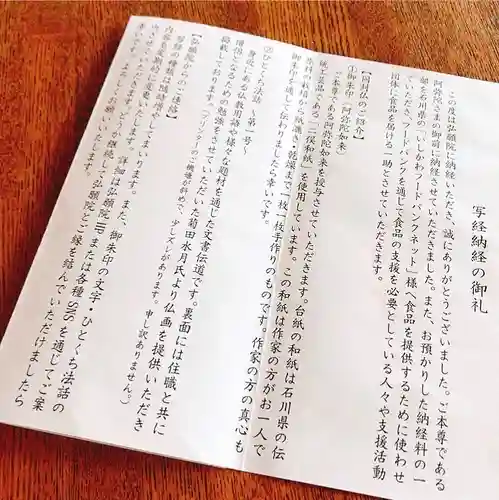 写経納経の御礼
この度は弘願院に納経いただき、誠にありがとうございました。ご本尊である
阿弥陀さまの御前に納経させていただきました。また、お預かりした納経料の一
部を石川県の「いしかわフードバンクネット」様へ食品を提供するために使わせ
ていただき、フードバンクを通じて食品の支援を必要としている人々や支援活動
団体に食品を届ける一助とさせていただきます。
【同封仏のご紹介】
①御朱印「阿弥陀如来」
ご本尊である阿弥陀如来を授与させていただきます。台紙の和紙は石川県の伝
統工芸品である「二俣和紙」を使用しています。この和紙は作家の方がお一人で
原料の栽培から紙漉き・乾燥まで一枚一枚手作りのものです。作家の方の真心も
御朱印を通して伝わりましたら幸いです。
②ひとくち法話〜第一号〜
身近にある仏教用語や様々な題材を通じた文書伝道です。裏面には住職と共に
僧侶となるための勉強をさせていただいた菊田水月氏より仏画を提供いただき
掲載しております。(プリンターのご機嫌が斜めで、少しズレがあります。申し訳ありません。)
【弘願院からのご連絡】
写経の種類は随時増やしてまいります。また、御朱印の文字・ひとくち法話の
内容も定期的に変更いたします。詳細は弘願院HPまたは各種SNSを通じてご案
内させていただきます。どうか継続して弘願院とご縁を結んでいただけましたら
よろしくお願いいたします。